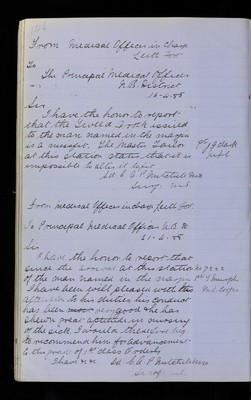 From Medical Officer in Charge
Leith Fort
To
The Principal Medical Officer
N.B. District
16-4-88
Sir
I have the honor to report
that the Tweed Frock issued
to the man named in the margin
is a misfit. The Master Tailor
at this station states that it is
impossible to alter it
Sd. A P
From Medical Officer in charge Leith Fort
To Principal Medical Officer N.B.
Sir
I have the honor to report that
since the arrival at this station
of the man named in the margin
I have been well pleased with the
attention to his duties his conduct
has been very good & he has
shewn great aptitude in nursing
of the sick. I would therefore beg
to recommend him for advancement
to the grade of 1st class Orderly
I have &c Sd. A P